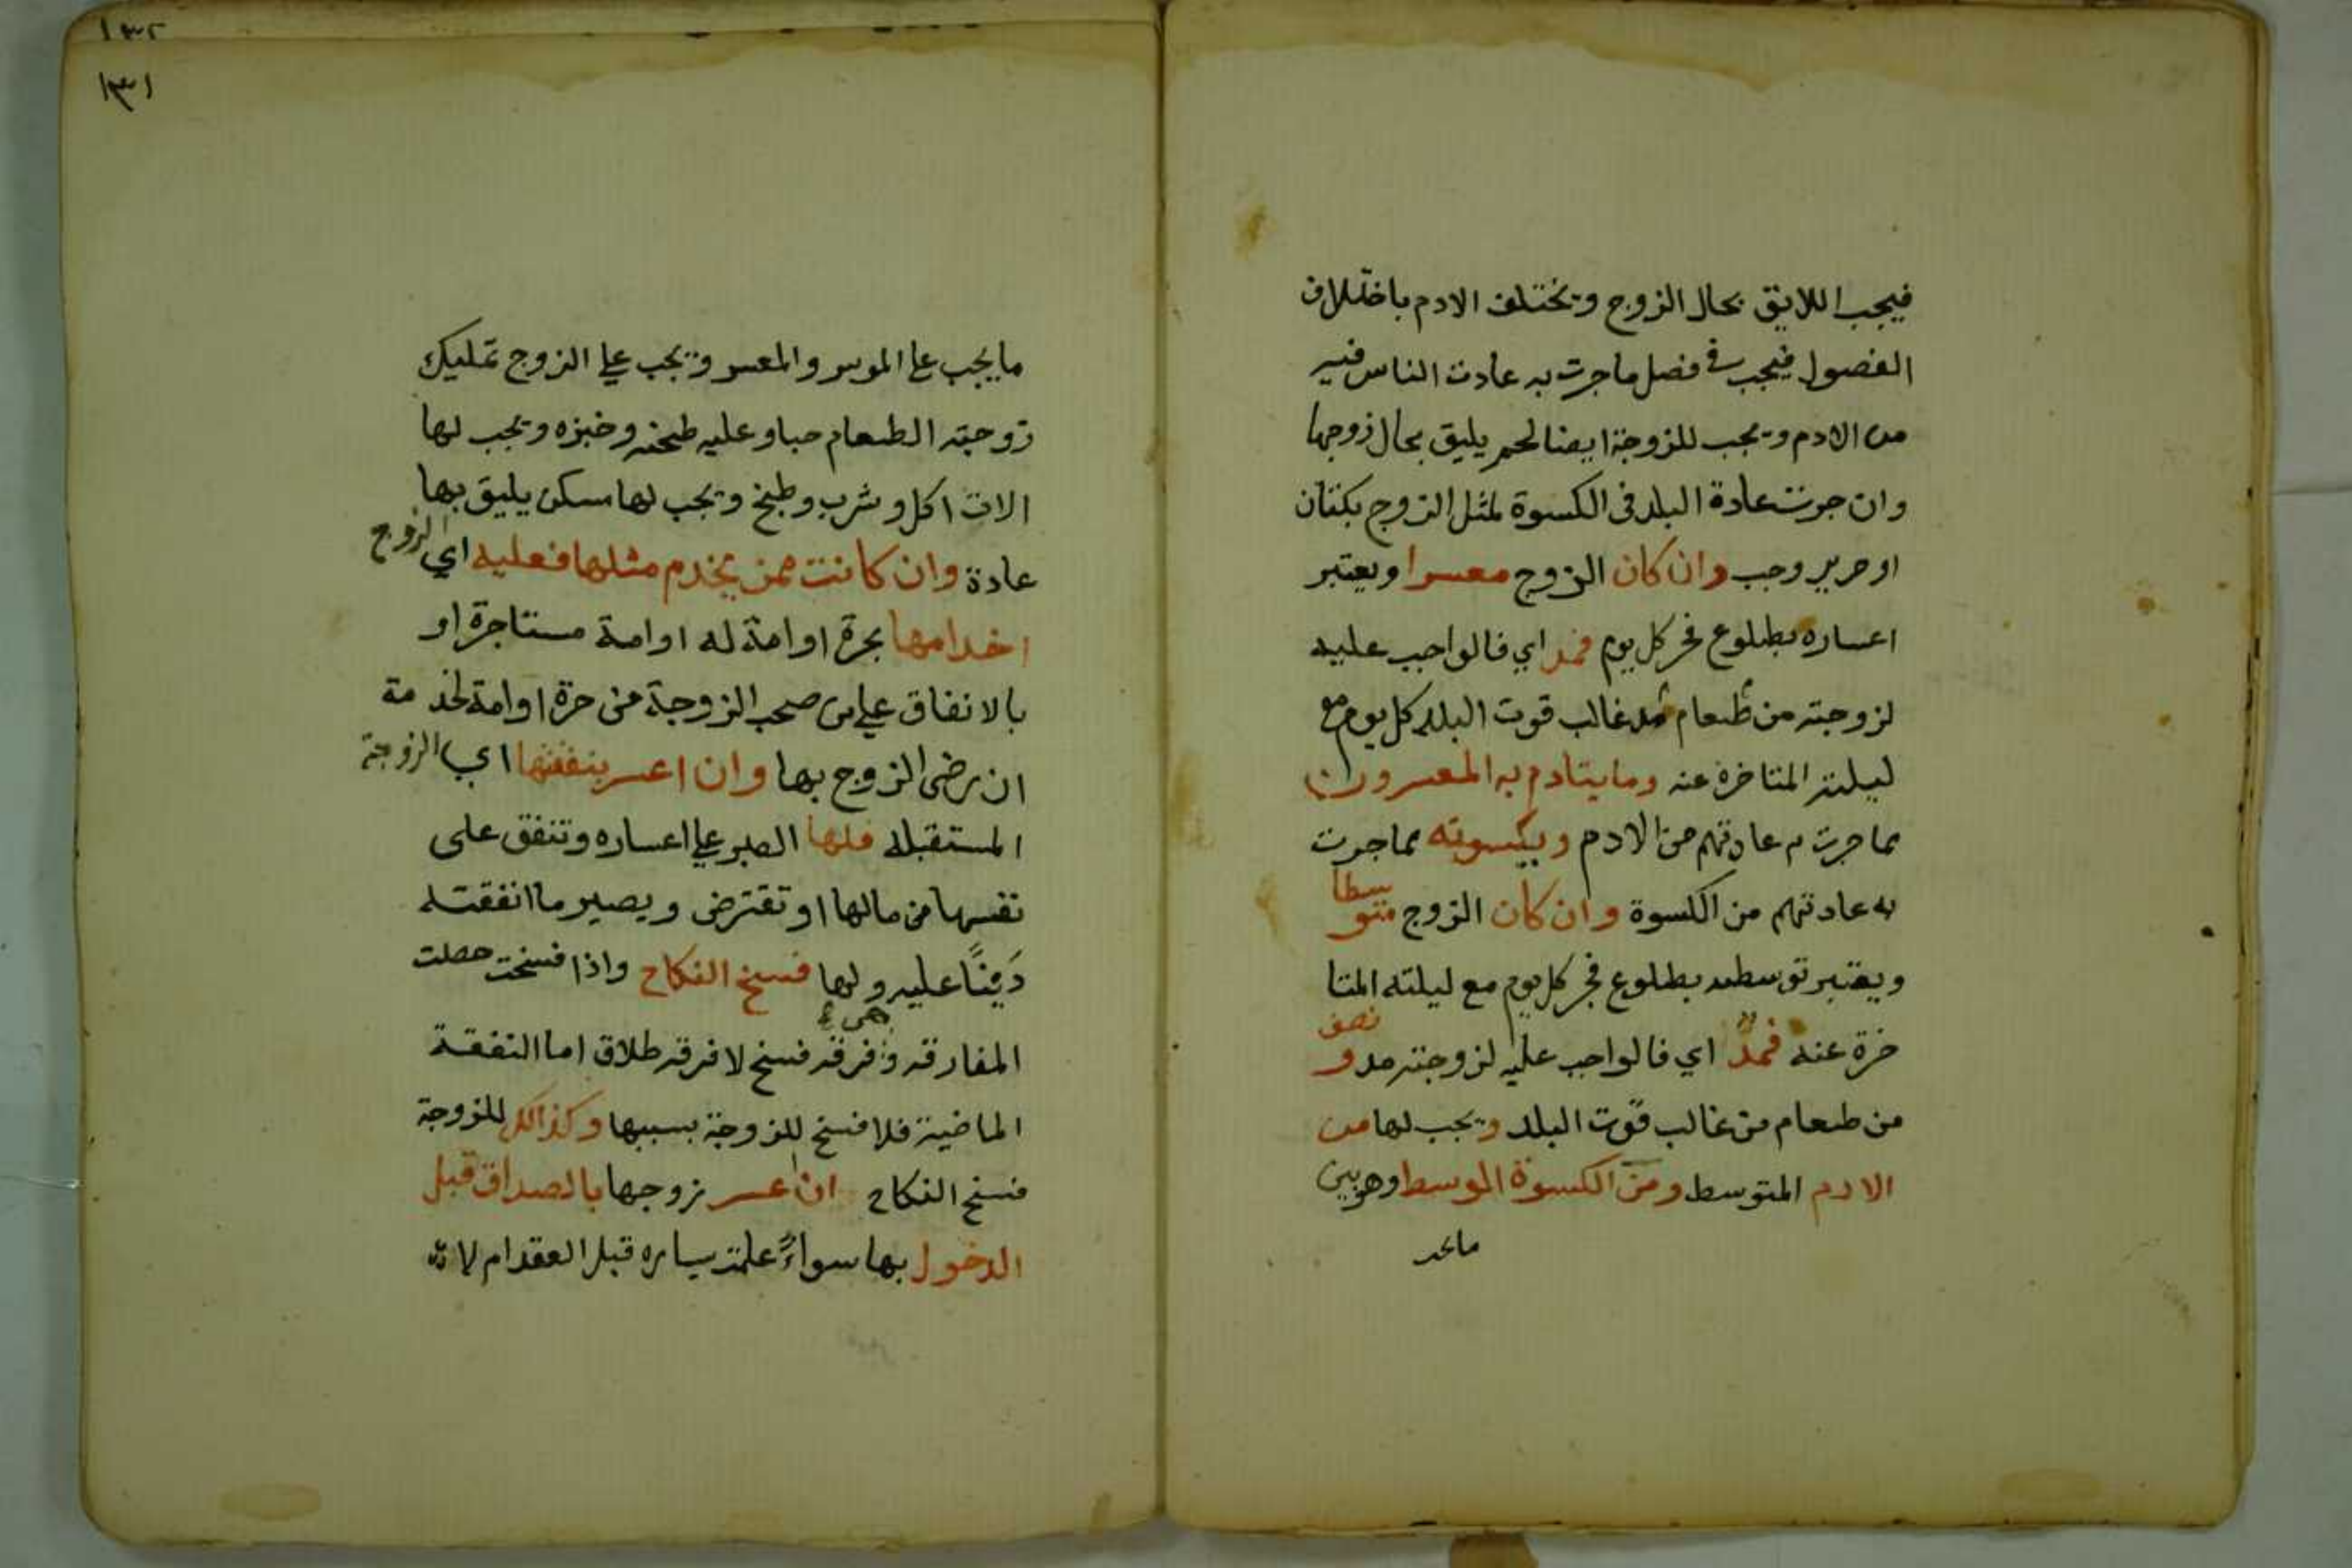 فيجب اللايق بحال الزوج ويختلف الادم باختلاف
الفصول فيجب في فصل ما جرت به عادت الناس فيه
من الادم ويجب للزوجة ايضا لحم يليق بحال زوجها
وان جرت عادة البلد في الكسوة لمثل الزوج بكتان
او حرير وجب وان كان الزوج معسرا ويعتبر
اعساره بطلوع فجر كل يوم فمد اي فالواجب عليه
لزوجته من طعام مد غالب قوت البلد كل يوم مع
ليلته المتاخرة عنه وما يتادم به المعسرون
مما جرت م عادتهم من الادم ويكسونه مما جرت
به عادتهم من الكسوة وان كان الزوج متوسطا
ويعتبر توسطه بطلوع فجر كل يوم مع ليلته المتا
خرة عنه فمدّ اي فالواجب عليه لزوجته مد و نصف
من طعام من غالب قوت البلد ويجب لها من
الادم المتوسط ومن الكسوة الوسط وهو بين
ما يجب
١٣٢
١٣١
ما يجب على الموسر والمعسر ويجب على الزوج تمليك
زوجته الطعام حبا وعليه طحنه وخبزه ويجب لها
الات اكل وشرب وطبخ ويجب لها مسكن يليق بها
عادة وان كانت ممن يخدم مثلها فعليه اي الزوج
اخدامها بحرة او امة له او امة مستاجرة او
بالانفاق على من صحب الزوجة من حرة او امة لخدمة
ان رضى الزوج بها وان اعسر بنفقتها اي الزوجة
المستقبله فلها الصبر على اعساره وتنفق على
نفسها من مالها او تقترض ويصير ما انفقته
دَيْنًا عليه ولها فسخ النكاح واذا فسخت حصلت
المفارقه وهي فرقه فسخ لا فرقه طلاق اما النفقة
الماضية فلا فسخ للزوجة بسببها وكذالك للزوجة
فسخ النكاح ان اعسر زوجها بالصداق قبل
الدخول بها سواءً علمت يساره قبل العقد ام لا